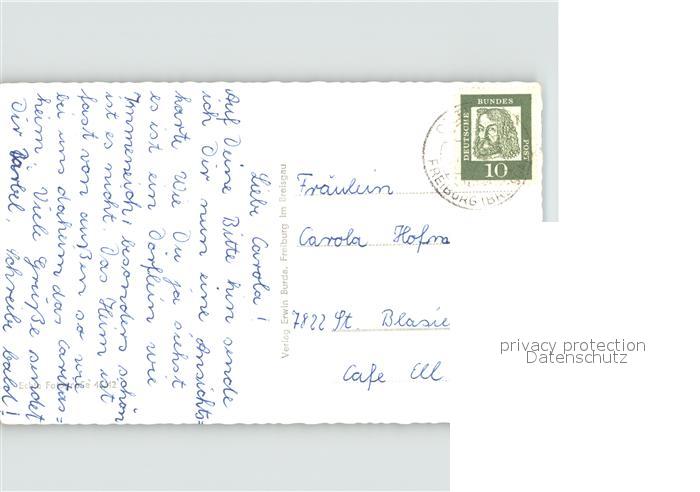 Liebe Carola!
Auf Deine Bitte hin sende
ich Dir nun eine Ansichts=
karte. Wie Du ja siehst
es ist ein Dörflein wie
Immeneich, besonders schön
ist es nicht. Das Heim ist
fast von außen so wie
bei uns daheim das Caritas=
heim. Viele Grüße sendet
Dir Bärbel, schreibe bald!
Echte Foto
Verlag Erwin Burda, Freiburg im Breisgau
Fräulein
Carola Hofma
7822 St. Blasie
Cafe Ell.
DEUTSCHE BUNDES POST
10
FREIBURG (BRSG)
privacy protection
Datenschutz